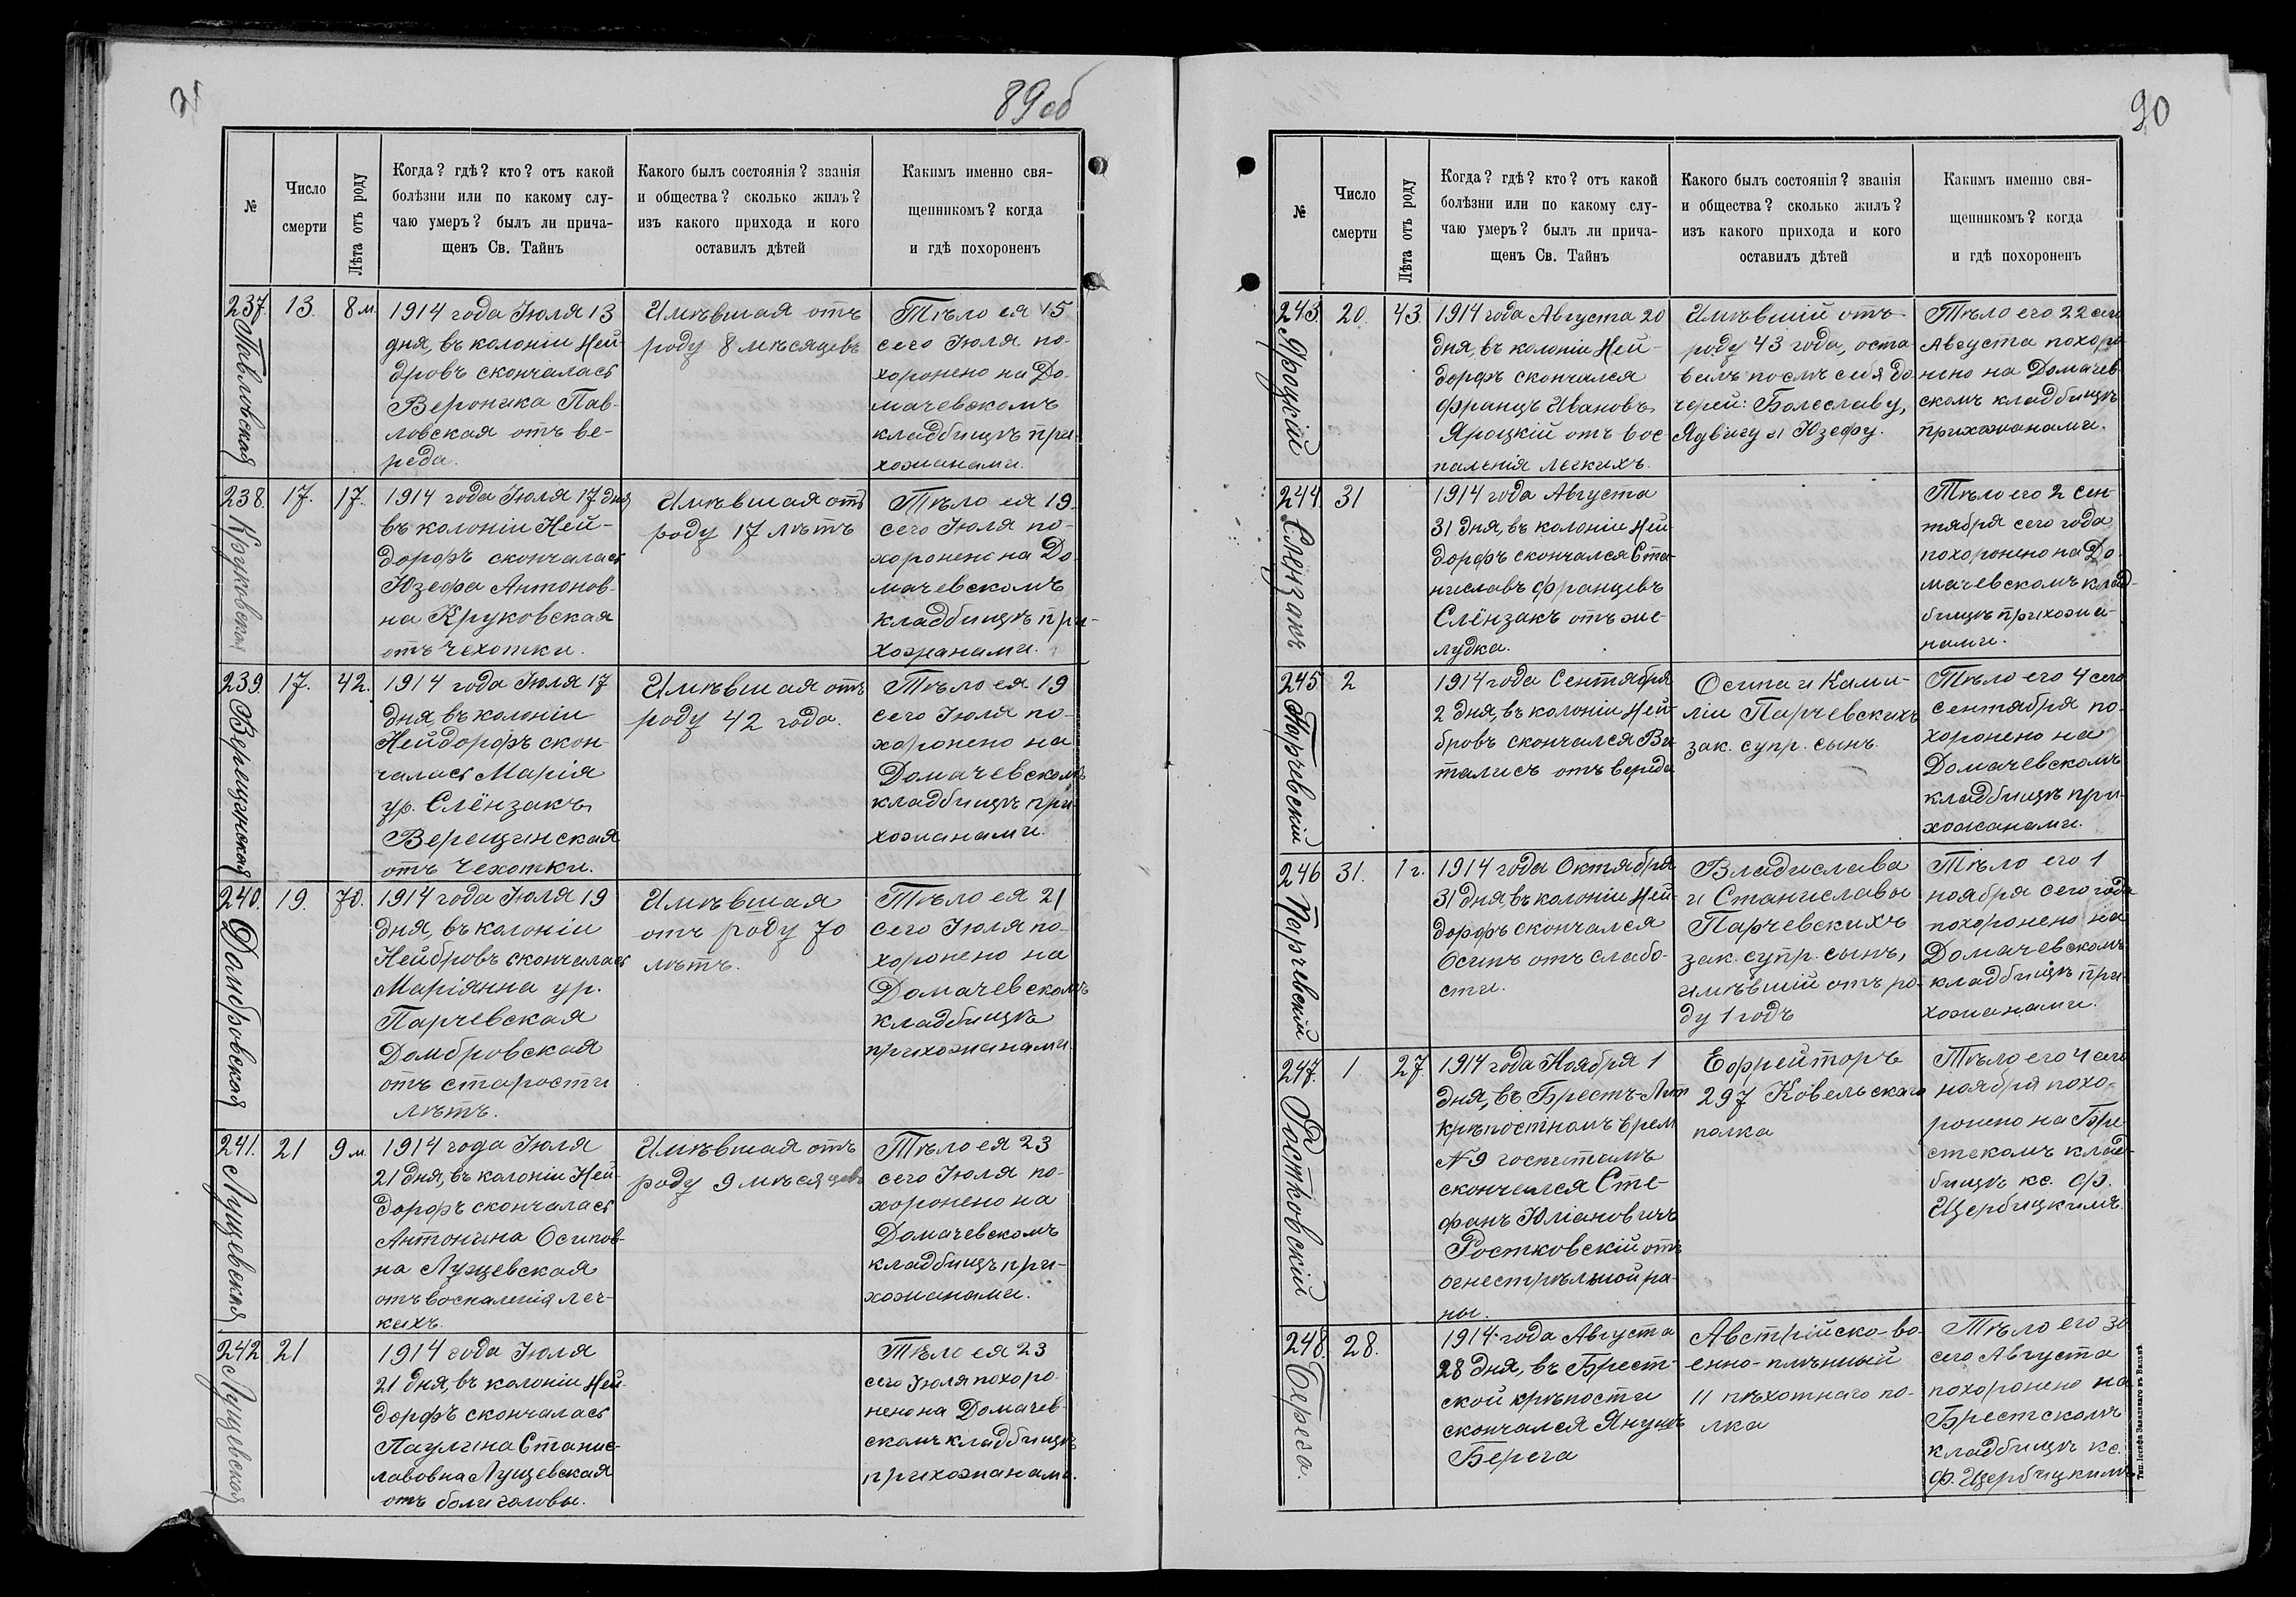 89об
№
Число
смерти
Лѣта отъ роду
Когда? гдѣ? кто? отъ какой
болѣзни или по какому слу-
чаю умеръ? былъ ли прича-
щенъ Св. Тайнъ
Какого былъ состоянія? званія
и общества? сколько жилъ?
изъ какого прихода и кого
оставилъ дѣтей
Какимъ именно свя-
щенникомъ? когда
и гдѣ похороненъ
237.
Павловская
13.
8 м.
1914 года Іюля 13
дня, въ колоніи Ней-
бровъ скончалась
Вероника Пав-
ловская отъ ве-
реда.
Имѣвшая отъ
роду 8 мѣсяцевъ
Тѣло ея 15
сего Іюля по-
хоронено на До-
мачевскомъ
кладбищѣ при-
хожанами.
238.
Круковская
17.
17.
1914 года Іюля 17 дня
въ колоніи Ней-
дорфъ скончалась
Юзефа Антонов-
на Круковская
отъ чехотки.
Имѣвшая отъ
роду 17 лѣтъ
Тѣло ея 19
сего Іюля по-
хоронено на До-
мачевскомъ
кладбищѣ при-
хожанами.
239
Верещинская
17.
42.
1914 года Іюля 17
дня, въ колоніи
Нейдорфъ скон-
чалась Марія
ур. Слёнзакъ
Верещинская
отъ чехотки.
Имѣвшая отъ
роду 42 года.
Тѣло ея 19
сего Іюля по-
хоронено на
Домачевскомъ
кладбищѣ при-
хожанами.
240.
Домбровская
19.
70.
1914 года Іюля 19
дня, въ колоніи
Нейбровъ скончалась
Маріянна ур.
Парчевская
Домбровская
отъ старости
лѣтъ.
Имѣвшая
отъ роду 70
лѣтъ.
Тѣло ея 21
сего Іюля по-
хоронено на
Домачевскомъ
кладбищѣ
прихожанами.
241.
Лущевская
21
9 м.
1914 года Іюля
21 дня, въ колоніи Ней-
дорфъ скончалась
Антонина Осипов-
на Лущевская
отъ воспаленія лег-
кихъ.
Имѣвшая отъ
роду 9 мѣсяцевъ
Тѣло ея 23
сего Іюля по-
хоронено на
Домачевскомъ
кладбищѣ при-
хожанами.
242
Лущевская
21
1914 года Іюля
21 дня, въ колоніи Ней-
дорфъ скончалась
Паулина Станис-
лавовна Лущевская
отъ боли головы.
Тѣло ея 23
сего Іюля похоро-
нено на Домачев-
скомъ кладбищѣ
прихожанами.
90
№
Число
смерти
Лѣта отъ роду
Когда? гдѣ? кто? отъ какой
болѣзни или по какому слу-
чаю умеръ? былъ ли прича-
щенъ Св. Тайнъ
Какого былъ состоянія? званія
и общества? сколько жилъ?
изъ какого прихода и кого
оставилъ дѣтей
Какимъ именно свя-
щенникомъ? когда
и гдѣ похороненъ
243.
Яроцкій
20.
43.
1914 года Августа 20
дня, въ колоніи Ней-
дорфъ скончался
Францъ Ивановъ
Яроцкій отъ вос
паленія легкихъ.
Имѣвшій отъ
роду 43 года, оста
вилъ послѣ себя до
черей: Болеславу,
Ядвигу и Юзефу.
Тѣло его 22 сего
Августа похоро-
нено на Домачев
скомъ кладбищѣ
прихожанами.
244.
Слёнзакъ
31
1914 года Августа
31 дня, въ колоніи Ней
дорфъ скончался Ста-
ниславъ Францевъ
Слёнзакъ отъ же-
лудка.
Тѣло его 2 сен-
тября сего года
похоронено на До-
мачевскомъ клад-
бищѣ прихожа-
нами.
245
Парчевскій
2
1914 года Сентября
2 дня, въ колоніи Ней-
бровъ скончался Ви
талисъ отъ вереда
Осипа и Ками-
ліи Парчевскихъ
зак. супр. сынъ.
Тѣло его 4 сего
сентября по-
хоронено на
Домачевскомъ
кладбищѣ при-
хожанами.
246
Парчевскій
31.
1 г.
1914 года Октября
31 дня, въ колоніи Ней-
дорфъ скончался
Осипъ отъ слабо-
сти.
Владислава
и Станиславы
Парчевскихъ
зак. супр. сынъ,
имѣвшій отъ ро-
ду 1 годъ
Тѣло его 1
ноября сего года
похоронено на
Домачевскомъ
кладбищѣ при-
хожанами.
247.
Ростковскій
1.
27.
1914 года Ноября 1
дня, въ Брестъ-Лит
крѣпостномъ врем
№ 9 госпиталѣ
скончался Сте-
фанъ Юліановичъ
Ростковскій отъ
огнестрѣльной ра-
ны.
Ефрейторъ
297 Ковельскаго
полка
Тѣло его 4 сего
ноября похо-
ронено на Бре-
стскомъ клад-
бищѣ кс. Ф.
Щербицкимъ.
248.
Берега.
28.
1914 года Августа
28 дня, въ Брест-
ской крѣпости
скончался Янушъ
Берега
Австрійско-во-
енно-плѣнный
11 пѣхотнаго по-
лка
Тѣло его 30
сего Августа
похоронено на
Брестскомъ
кладбищѣ кс.
Ф. Щербицкимъ
Тип. Іосифа Завадзкаго въ Вильнѣ.